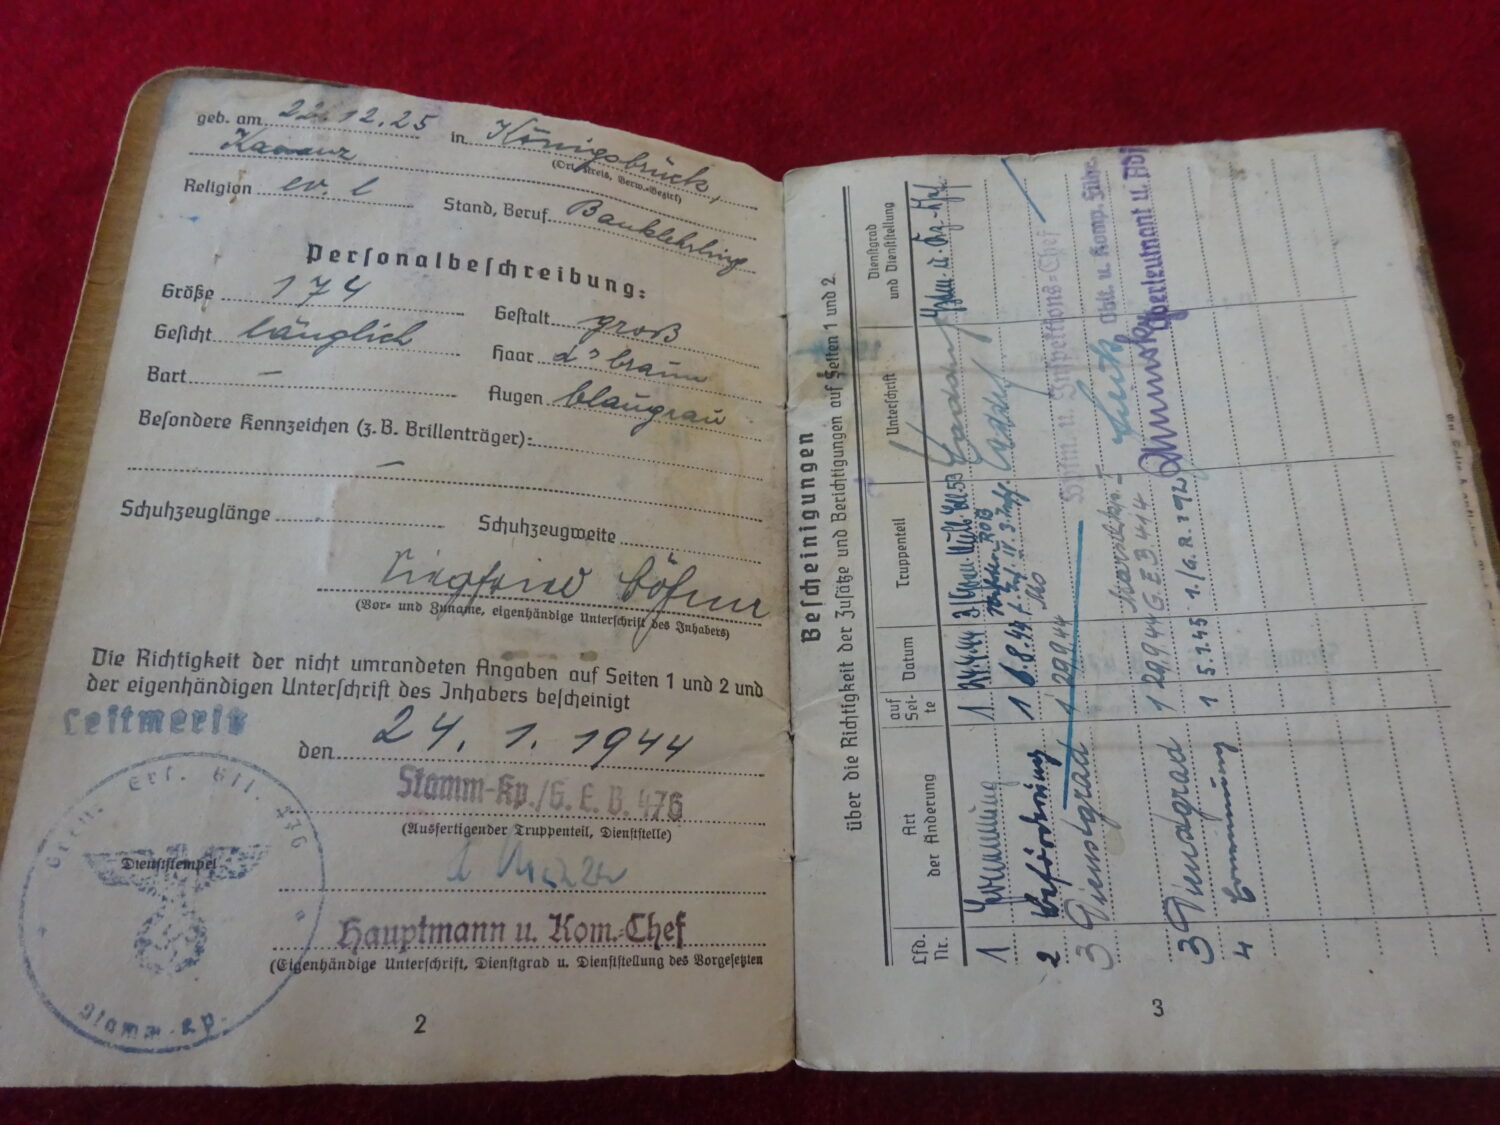 geb. am 22.12.25 in Königsbrück,
(Ort, Kreis, Verw.-Bezirk)
Kamenz
Religion ev. l Stand, Beruf Banklehrling
Personalbeschreibung:
Größe 174 Gestalt groß
Gesicht länglich Haar braun
Bart – Augen blaugrau
Besondere Kennzeichen (z.B. Brillenträger):
–
Schuhzeuglänge Schuhzeugweite
Siegfried Böhm
(Vor- und Zuname, eigenhändige Unterschrift des Inhabers)
Die Richtigkeit der nicht umrandeten Angaben auf Seiten 1 und 2 und
der eigenhändigen Unterschrift des Inhabers bescheinigt
Leitmeritz
den 24. 1. 1944
Stamm-Kp./G. E. B. 476
(Ausfertigender Truppenteil, Dienststelle)
Gren. Ers. Btl. 476
Dienststempel
Stamm-Kp.
Hauptmann u. Kom.-Chef
(Eigenhändige Unterschrift, Dienstgrad u. Dienststellung des Vorgesetzten
2
Bescheinigungen
über die Richtigkeit der Zusätze und Berichtigungen auf Seiten 1 und 2
Lfd. Nr. Art der Änderung auf Seite Datum Truppenteil Unterschrift Dienstgrad und Dienststellung
1 Ernennung 1
2 Beförderung 1 6.8.44
Hptm. u. Inspektions-Chef
3 Dienstgrad 1 29.9.44
Marschkp. I
Oblt. u. Komp. Führ.
3 Dienstgrad 1 29.9.44 G.E.B. 414
Oberleutnant u. Adj
4 Ernennung 1 5.1.45 1./G.R. 192
3